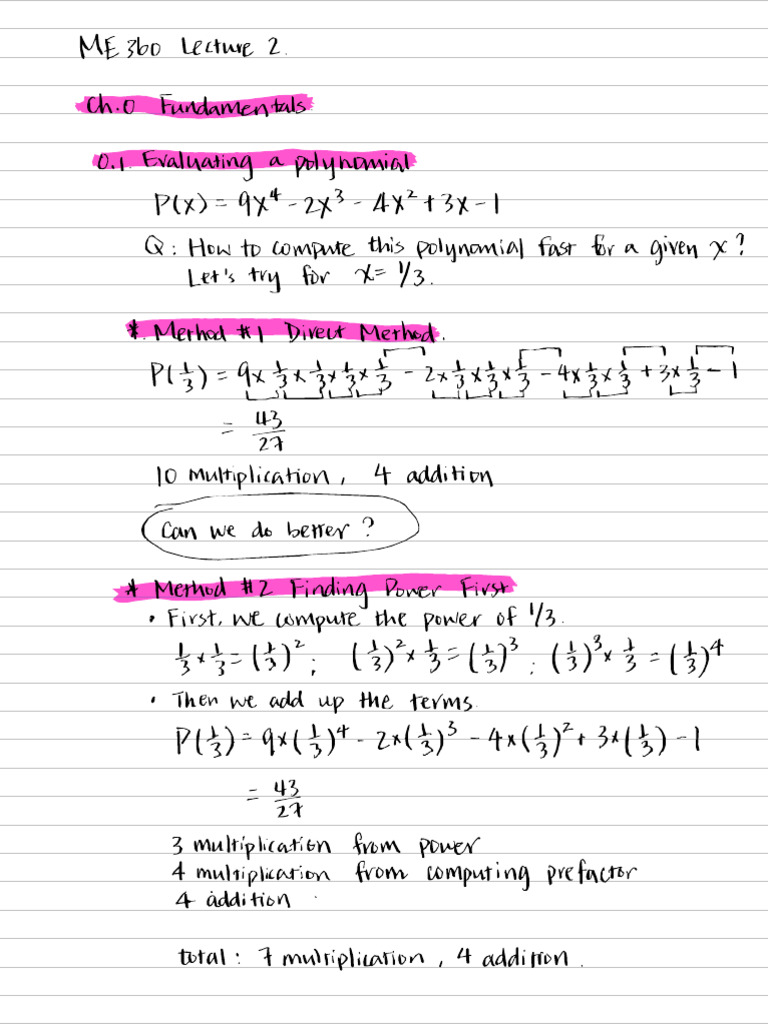 ME 360 Lecture 2.
Ch.0 Fundamentals
0.1. Evaluating a polynomial
P(x) = 9x⁴ - 2x³ - 4x² + 3x - 1
Q: How to compute this polynomial fast for a given x?
Let's try for x = 1/3.
* Method #1 Direct Method.
P(1/3) = 9 × 1/3 × 1/3 × 1/3 × 1/3 - 2 × 1/3 × 1/3 × 1/3 - 4 × 1/3 × 1/3 + 3 × 1/3 - 1
= 43/27
10 multiplication, 4 addition
Can we do better?
* Method #2 Finding Power First
• First, we compute the power of 1/3.
1/3 × 1/3 = (1/3)²; (1/3)² × 1/3 = (1/3)³; (1/3)³ × 1/3 = (1/3)⁴
• Then we add up the terms.
P(1/3) = 9 × (1/3)⁴ - 2 × (1/3)³ - 4 × (1/3)² + 3 × (1/3) - 1
= 43/27
3 multiplication from power
4 multiplication from computing prefactor
4 addition
total: 7 multiplication, 4 addition.